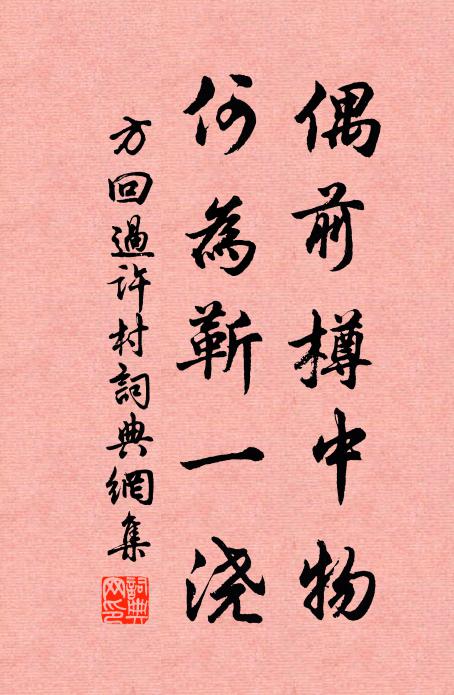 偶前樽中物
何為靳一浇
方回過许村詞典網集
詞典网印